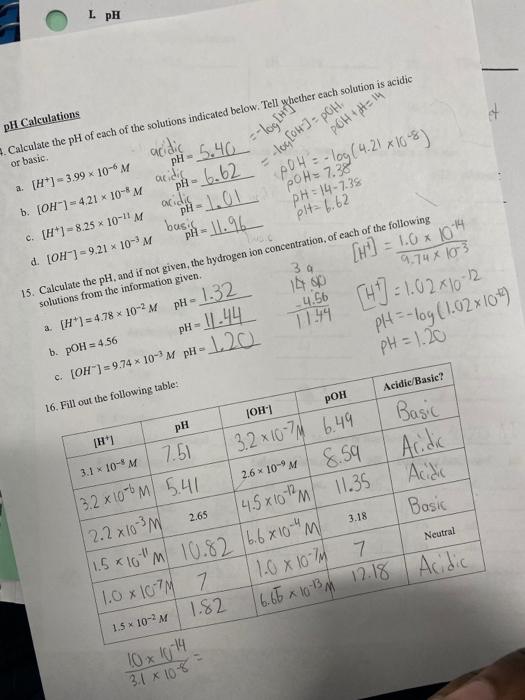 I. pH
pH Calculations
. Calculate the pH of each of the solutions indicated below. Tell whether each solution is acidic
or basic.
a. [H⁺] = 3.99 × 10⁻⁶ M acidic pH = 5.40
b. [OH⁻] = 4.21 × 10⁻⁸ M acidic pH = 6.62
c. [H⁺] = 8.25 × 10⁻¹¹ M acidic pH = 1.01
d. [OH⁻] = 9.21 × 10⁻³ M basic pH = 11.96
= -log[H⁺]
= -log[OH⁻] = pOH
pOH + pH = 14
pOH = -log(4.21 x 10⁻⁸)
pOH = 7.38
pH = 14-7.38
pH = 6.62
15. Calculate the pH, and if not given, the hydrogen ion concentration, of each of the following
solutions from the information given.
a. [H⁺] = 4.78 × 10⁻² M pH = 1.32
b. pOH = 4.56 pH = 11.44
c. [OH⁻] = 9.74 × 10⁻³ M pH = 1.20
- 4.56
11.44
[H⁺] = 1.0 x 10⁻¹⁴
9.74 x 10⁻³
[H⁺] = 1.02 x 10⁻¹²
pH = -log(1.02 x 10⁻¹²)
pH = 1.20
16. Fill out the following table:
[H⁺] pH [OH⁻] pOH Acidic/Basic?
3.1 × 10⁻⁸ M 7.51 3.2 x 10⁻⁷ M 6.49 Basic
3.2 x 10⁻⁶ M 5.41 2.6 × 10⁻⁹ M 8.59 Acidic
2.2 x 10⁻³ M 2.65 4.5 x 10⁻¹² M 11.35 Acidic
1.5 x 10⁻¹¹ M 10.82 6.6 x 10⁻⁴ M 3.18 Basic
1.0 x 10⁻⁷ M 7 1.0 x 10⁻⁷ M 7 Neutral
1.5 × 10⁻² M 1.82 6.66 x 10⁻¹³ M 12.18 Acidic
1.0 x 10⁻¹⁴
3.1 x 10⁻⁸ =